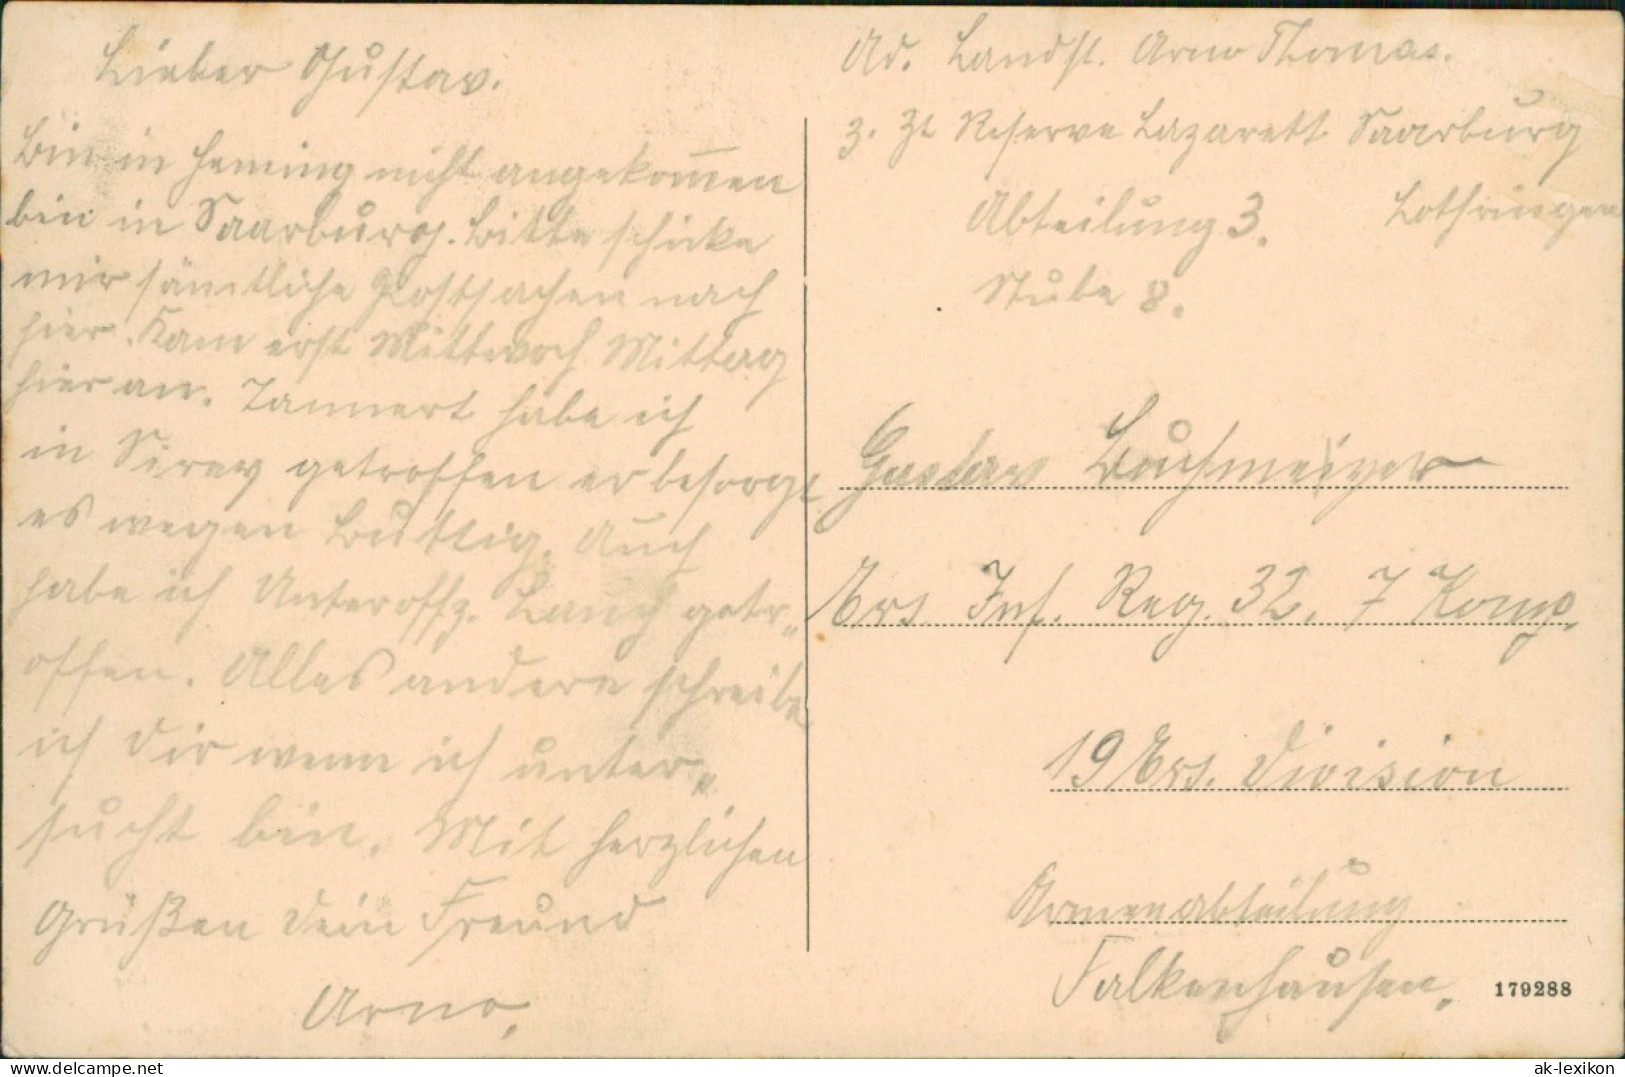 Lieber Gustav.
Bin in Heming nicht angekommen
bin in Saarburg. Bitte schicke
mir sämtliche Postsachen nach
hier. Kam erst Mittwoch Mittag
hier an. Tannert habe ich
in Sirey getroffen er besorgt
es wegen Buttig. Auch
habe ich Unteroffz. Lauch getr„
offen. Alles andere schreibe
ich Dir wenn ich unter„
sucht bin. Mit herzlichen
Grüßen Dein Freund
Arno.
Ad. Landst. Arno Thomas.
z. Zt Reserve Lazarett Saarburg
Abteilung 3. Lothringen
Stube 8.
Gustav Buchmeiyer
Ers. Inf. Reg. 32. 7 Komp.
19 Ers. Division
Armeeabteilung
Falkenhausen.
179288
www.delcampe.net
ak-lexikon